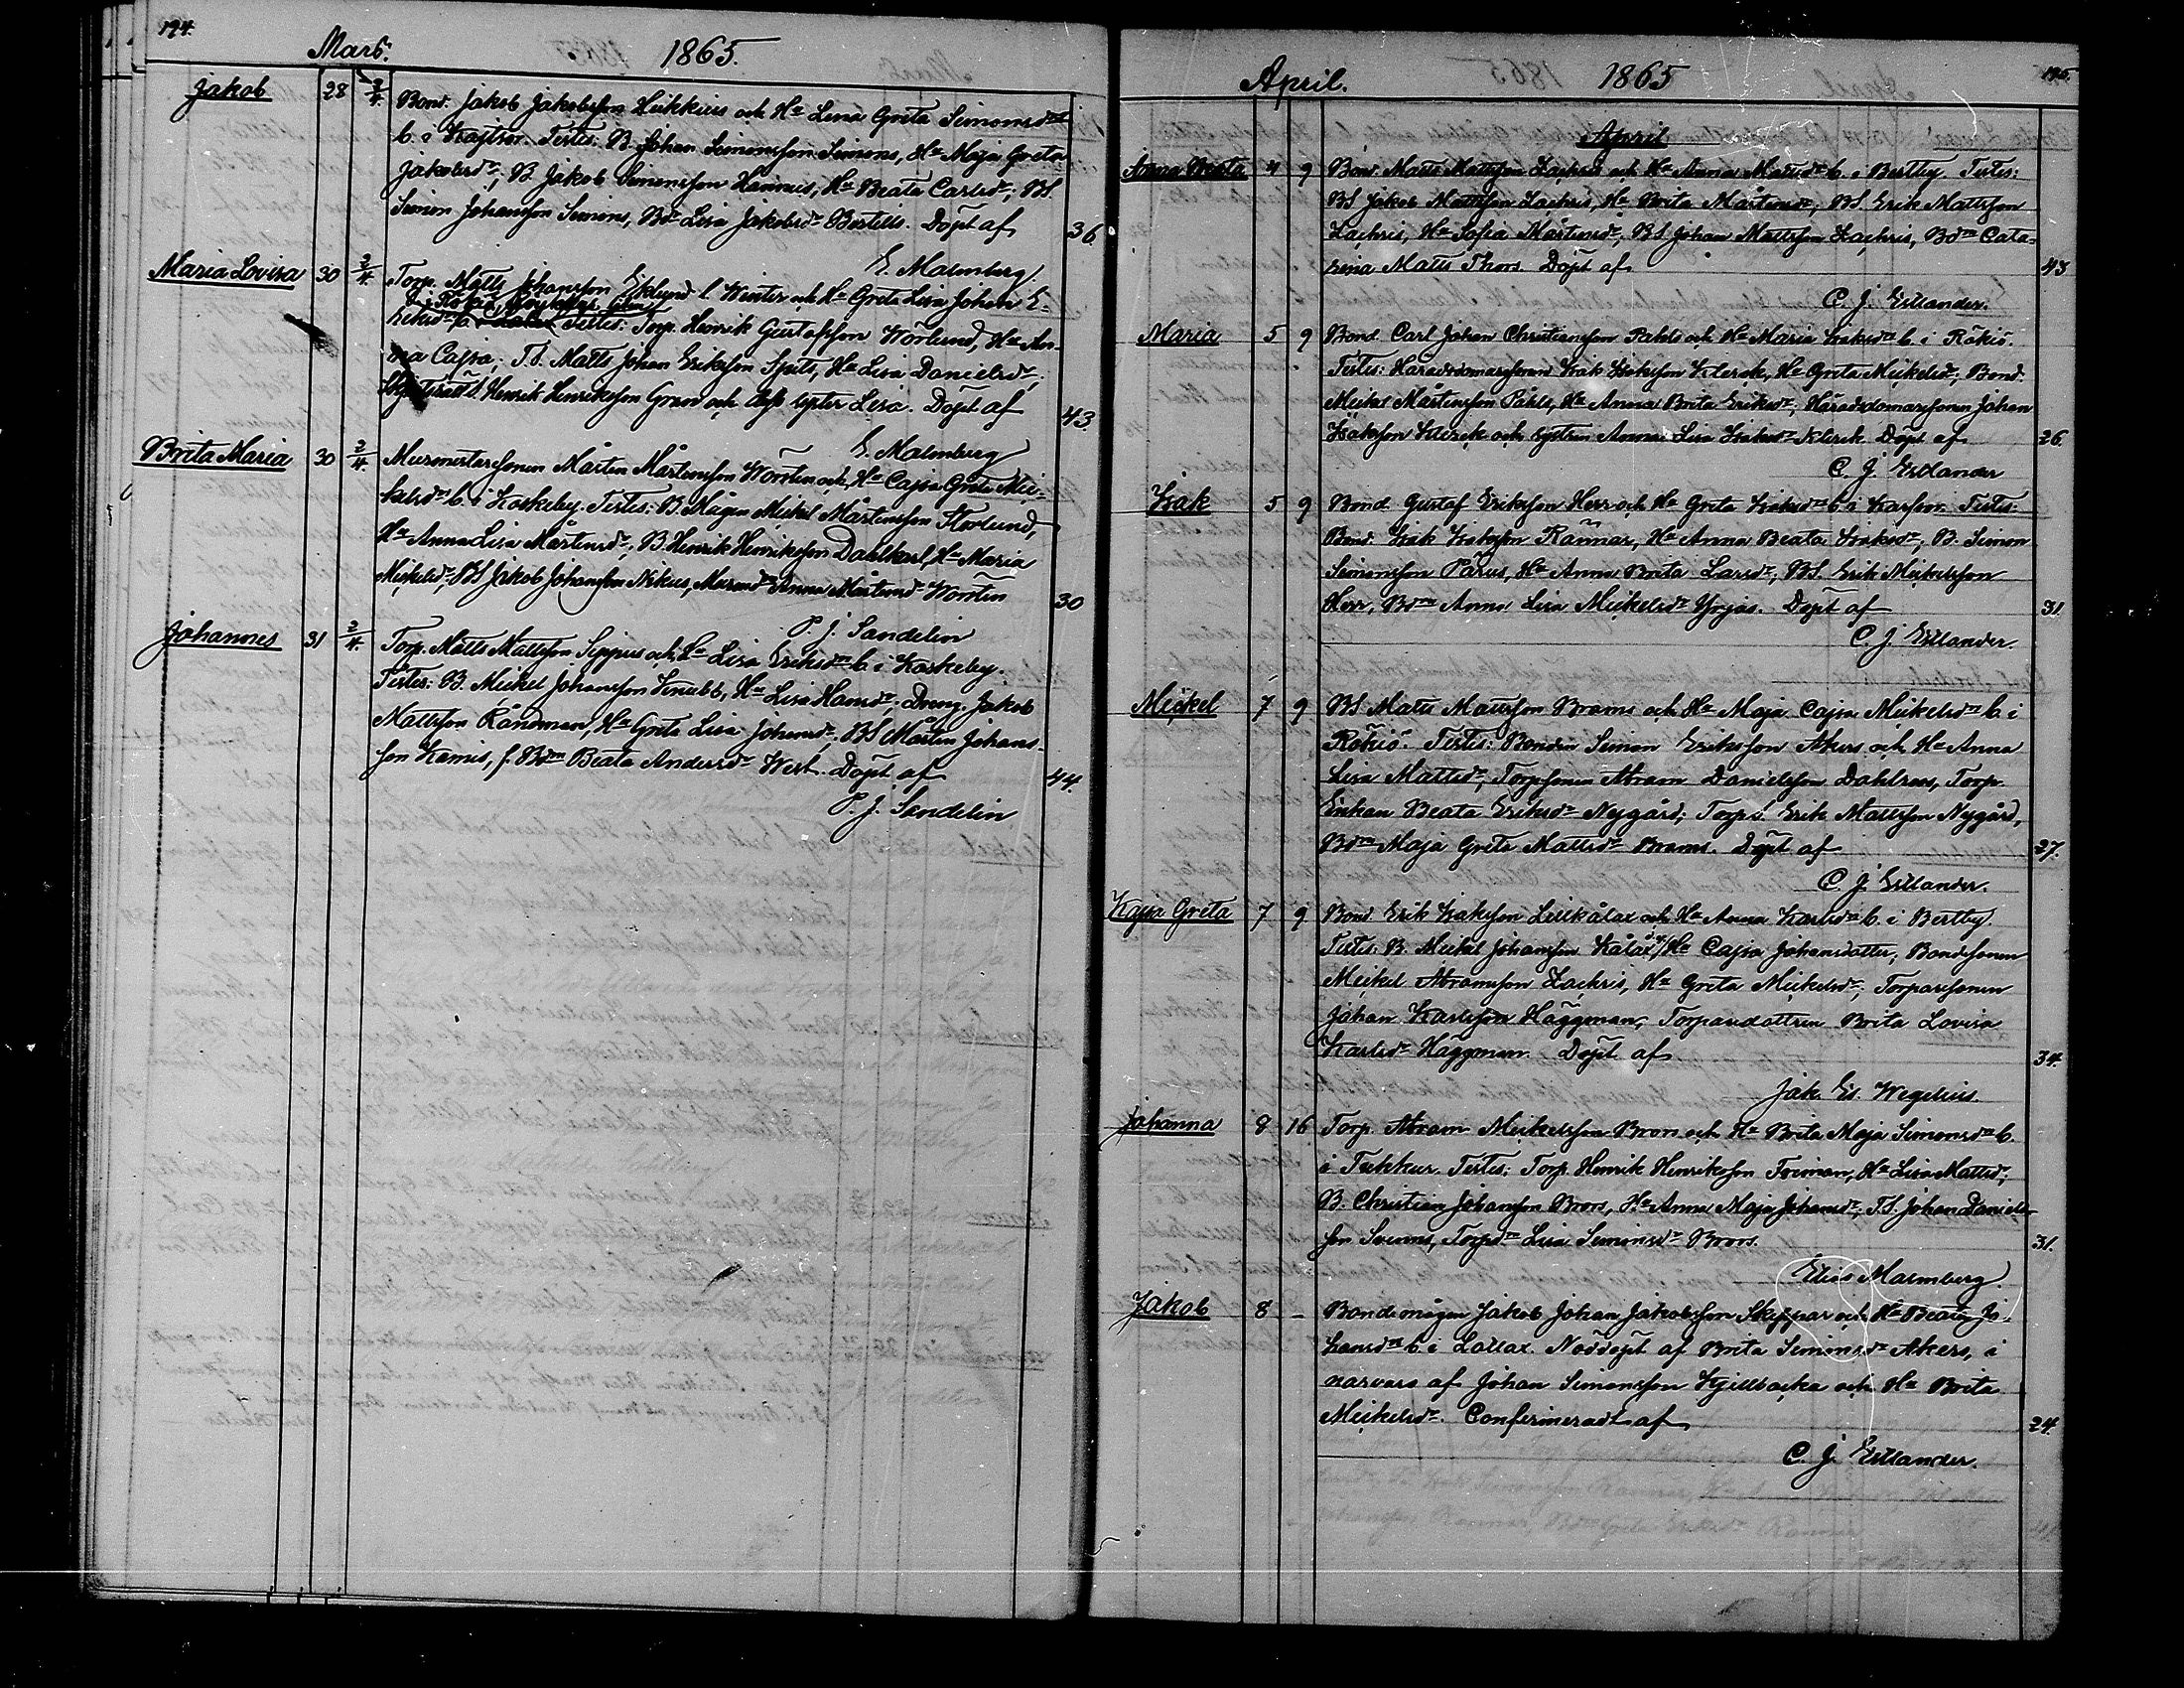 194.
Mars. 1865.
Jakob 28 2/4. Bond. Jakob Jakobsson Heikkus och Hu Lena Greta Simonsdr
b. i Kaitsor. Testes: B. Johan Simonsson Simons, Hu Maja Greta
Jakobsdr; B. Jakob Simonsson Hannus, Hu Beata Carlsdr; BS.
Simon Johansson Simons, Bdr Lisa Jakobsdr Bertills. Döpt af 36
E. Malmberg.
Maria Lovisa 30 2/4. Torp. Matts Johansson Eklund l. Winter och Hu Greta Lisa Johan E-
i Rökiö
riksdr b. Testes: Torp. Henrik Gustafsson Wörlund, Hu An-
na Cajsa; T.S. Matts Johan Eriksson Spits, Hu Lisa Danielsdr;
Henrik Henriksson Gran och dess syster Lisa. Döpt af 43.
E. Malmberg
Brita Maria 30 2/4. Murmestaresonen Mårten Mårtensson Wörsten och Hu Cajsa Greta Mic-
kelsdr b. i Koskeby. Testes: B. Mågen Mickel Mårtensson Florlund,
Hu Anna Lisa Mårtensdr, B. Henrik Henriksson Dahlkarl, Hu Maria
Mickelsdr; BS Jakob Johansson Nikus, Anna Mårtensdr Wörsten 30
P. J. Sandelin
Johannes 31 2/4. Torp. Matts Mattsson Sippus och Hu Lisa Eriksdr b. i Koskeby.
Testes: B. Mickel Johansson Knubb, Hu Lisa Hansdr; Dreng. Jakob
Mattsson Rändman, Hu Greta Lisa Johansdr; BS Mårten Johans-
son Kamis, f. Bdn Beata Andersdr West. Döpt af 44.
P. J. Sandelin
195.
April. 1865
April
Anna Beata 4 9 Bond. Matts Mattsson Zachris och Hu Anna Mattsdr b. i Bertby. Testes:
BS Jakob Mattsson Zachris, Hu Brita Mårtensdr; BS. Erik Mattsson
Zachris, Hu Sofia Mårtensdr; BS Johan Mattsson Zachris, Bdn Cata-
rina Matts Thors. Döpt af 43
C. J. Estlander.
Maria 5 9 Bond. Carl Johan Christiansson Påhls och Hu Maria Isaksdr b. i Rökiö.
Testes: Häradsdomaresonen Isak Isaksson Klerck, Hu Greta Mickelsdr; Bond.
Mickel Mårtensson Påhls, Hu Anna Brita Eriksdr; Häradsdomaresonen Johan
Isaksson Klerck och systren Anna Lisa Isaksdr Klerck. Döpt af 26.
C. J. Estlander
Isak 5 9 Bond. Gustaf Eriksson Herr och Hu Greta Isaksdr b. i Karfsor. Testes:
Bond. Isak Isaksson Rännar, Hu Anna Beata Isaksdr; B. Simon
Simonsson Parus, Hu Anna Brita Larsdr; BS. Erik Mickelsson
Herr, Bdn Anna Lisa Mickelsdr Yrjas. Döpt af 31.
C. J. Estlander.
Mickel 7 9 BS Matts Mattsson Brams och Hu Maja Cajsa Mickelsdr b. i
Rökiö. Testes: Bonden Simon Eriksson Akers och Hu Anna
Lisa Mattsdr; Torpsonen Abram Danielsson Dahlroos, Torp.
Enkan Beata Eriksdr Nygård; Torps. Erik Mattsson Nygård,
Bdn Maja Greta Mattsdr Brams. Döpt af 27.
C. J. Estlander.
Kajsa Greta 7 9 Bond. Erik Isaksson Lillkålax och Hu Anna Karlsdr b. i Bertby.
Testes: B. Mickel Johansson Kålax, Hu Cajsa Johansdotter; Bondsonen
Mickel Abramsson Zachris, Hu Greta Mickelsdr; Torparesonen
Johan Karlsson Häggman, Torparedottren Brita Lovisa
Karlsdr Häggman. Döpt af 34.
Jak. Es. Wegelius.
Johanna 8 16 Torp. Abram Mickelsson Brors och Hu Brita Maja Simonsdr b.
i Tuckkur. Testes: Torp. Henrik Henriksson Toiman, Hu Lisa Mattsdr;
B. Christian Johansson Brors, Hu Anna Maja Johansdr; T.S. Johan Daniels-
son Svenns, Torpdn Lisa Simonsdr Brors. 31.
Elias Malmberg.
Jakob 8 – Bondemågen Jakob Johan Jakobsson Skeppar och Hu Beata Jo-
hansdr b. i Lotlax. Nöddöpt af Brita Simonsdr Akers, i
närvaro af Johan Simonsson Kjellbacka och Hu Brita
Mickelsdr. Confirmeradt af 24.
C. J. Estlander.